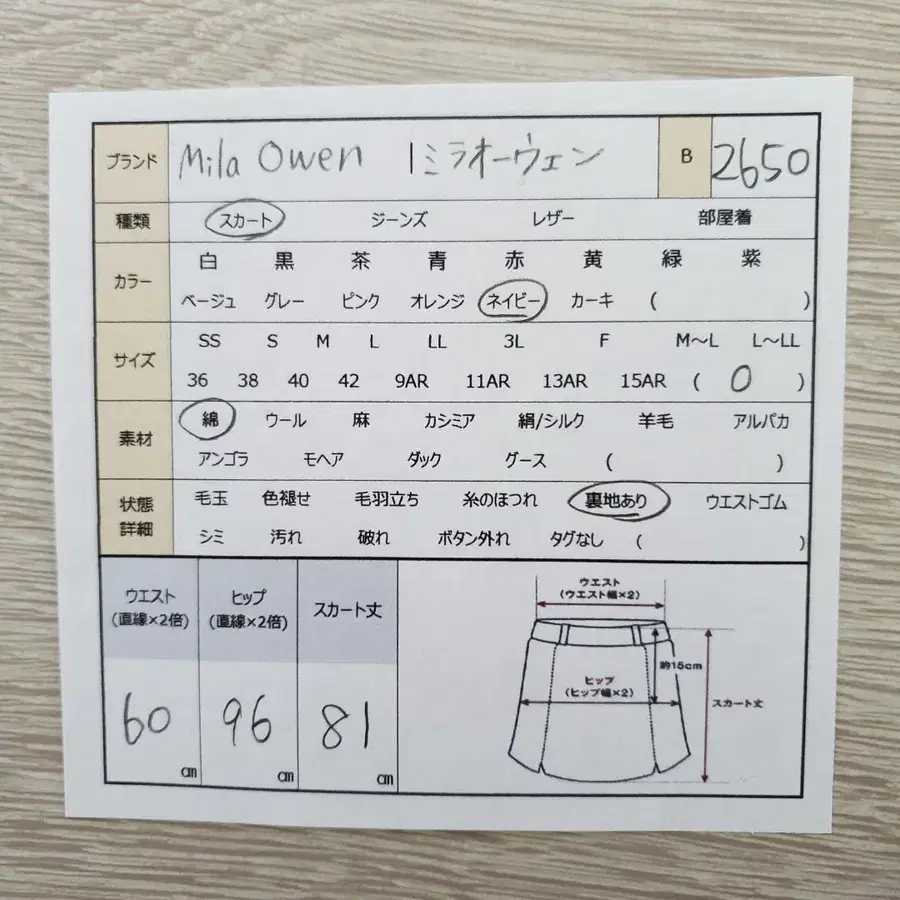 ブランド Mila Owen | ミラオーウェン B 2650
種類 スカート ジーンズ レザー 部屋着
カラー 白 黒 茶 青 赤 黄 緑 紫
ベージュ グレー ピンク オレンジ ネイビー カーキ ( )
サイズ SS S M L LL 3L F M～L L～LL
36 38 40 42 9AR 11AR 13AR 15AR ( 0 )
素材 綿 ウール 麻 カシミア 絹/シルク 羊毛 アルパカ
アンゴラ モヘア ダック グース ( )
状態 毛玉 色褪せ 毛羽立ち 糸のほつれ 裏地あり ウエストゴム
詳細 シミ 汚れ 破れ ボタン外れ タグなし ( )
ウエスト ヒップ スカート丈
(直線×2倍) (直線×2倍)
60 cm 96 cm 81 cm
ウエスト
(ウエスト幅×2)
約15cm
ヒップ
(ヒップ幅×2)
スカート丈